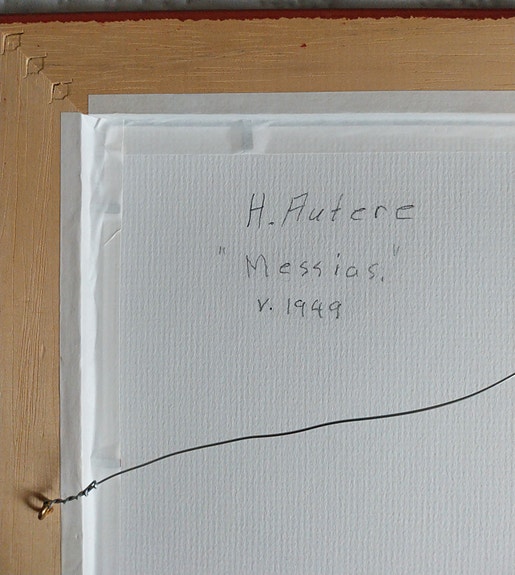 H. Autere
"Messias."
v. 1949